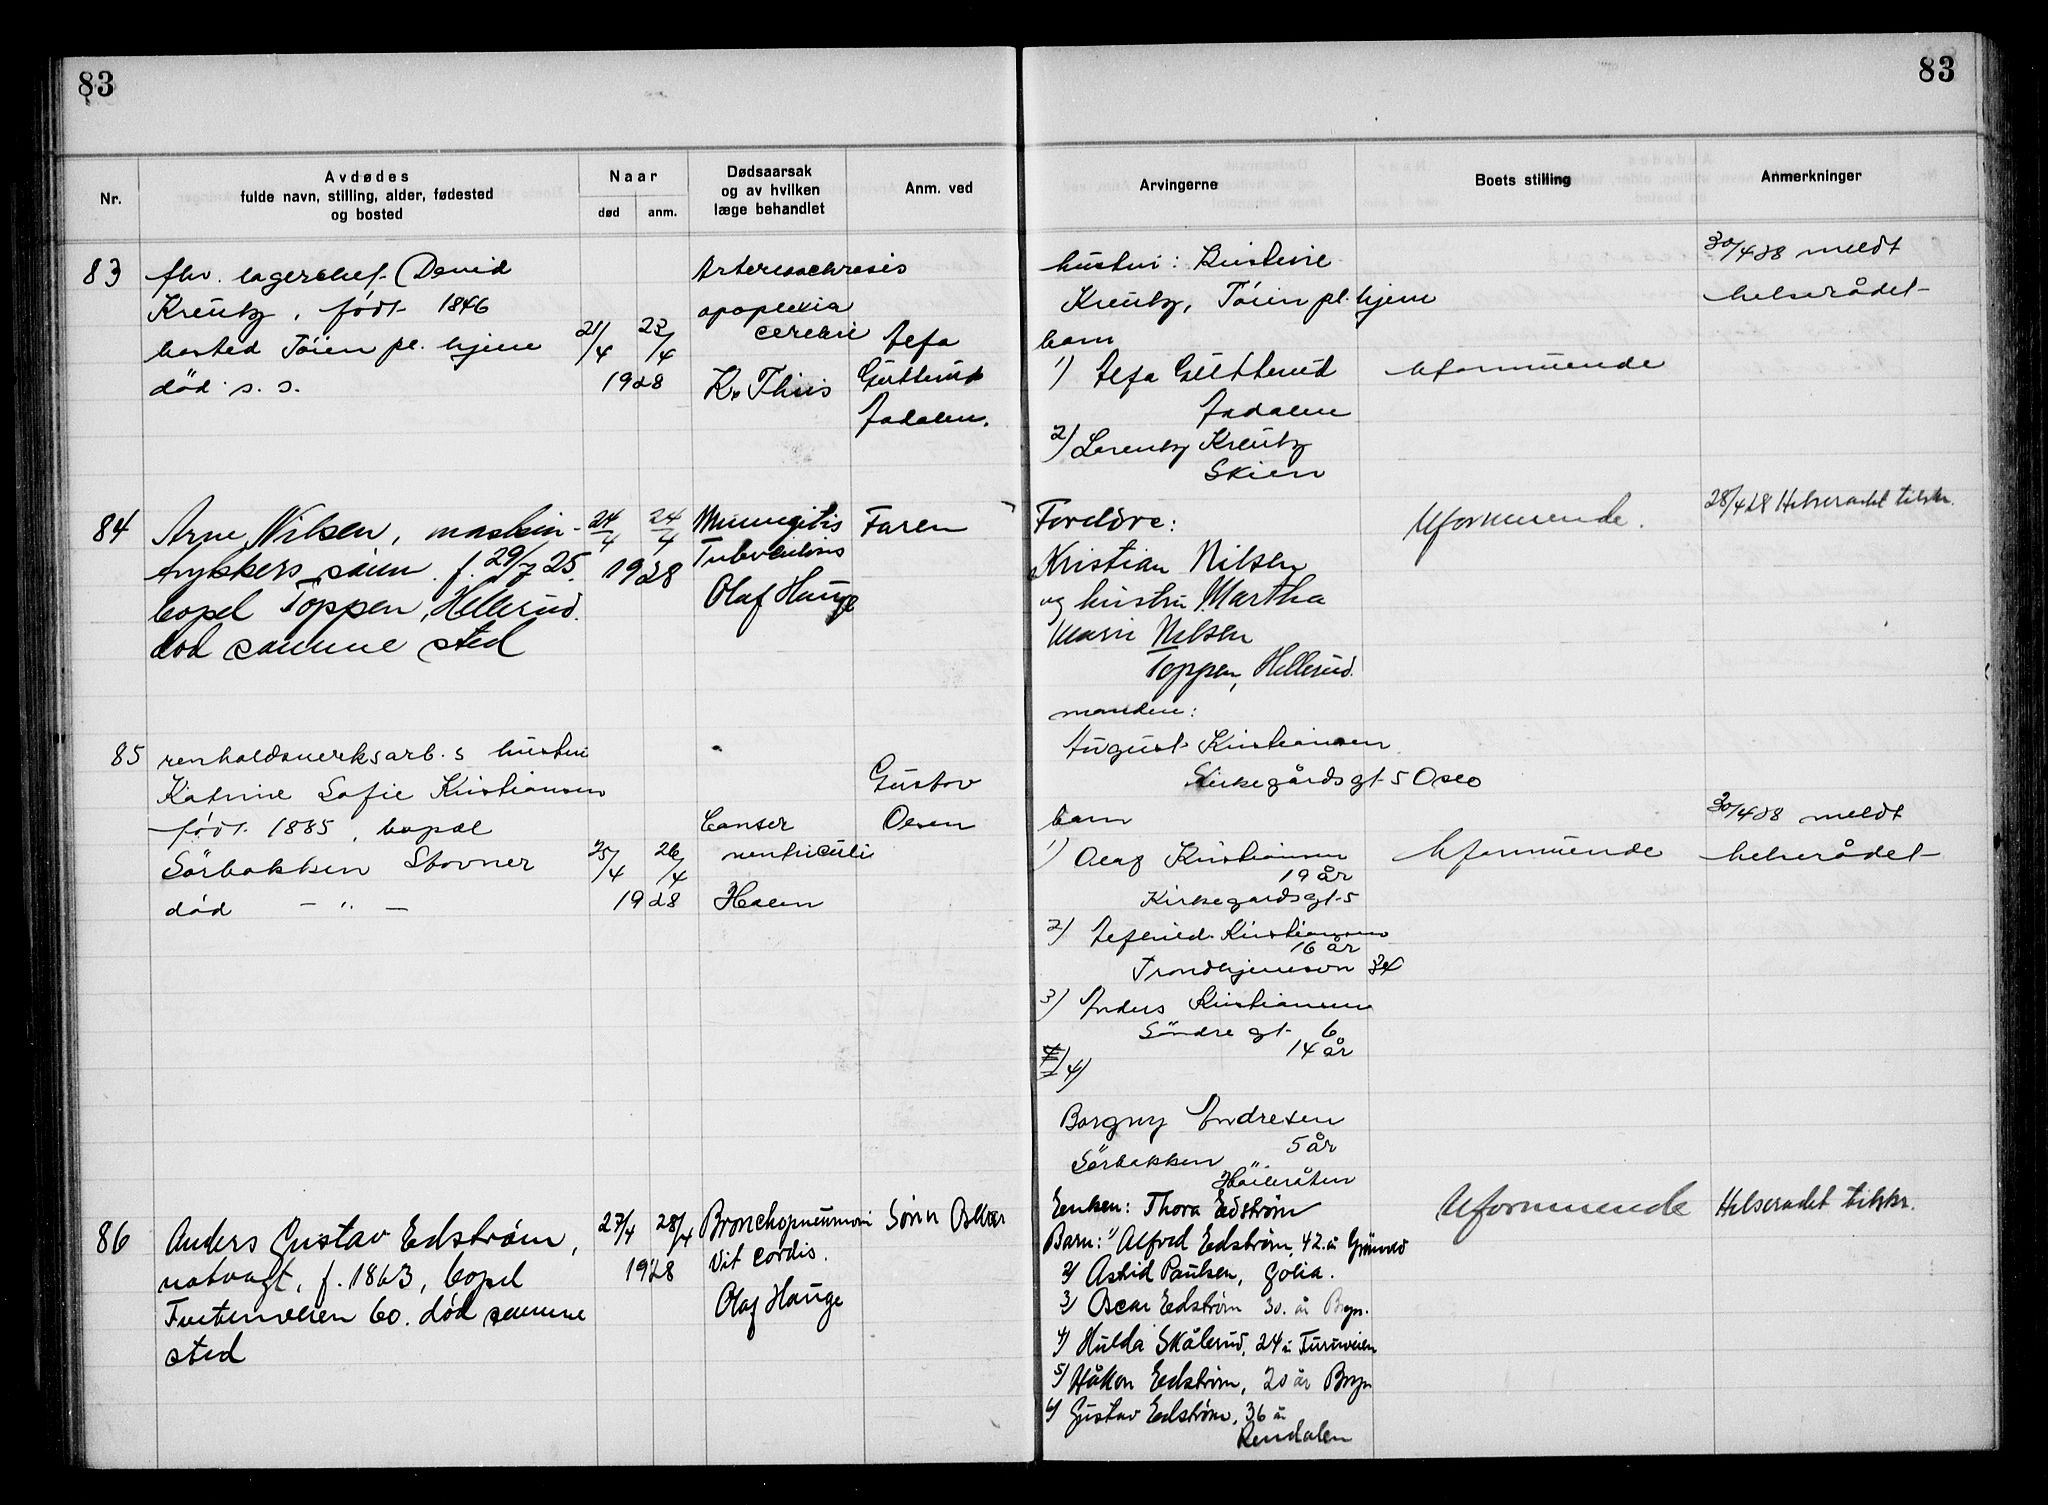 83
83
Nr.
Avdødes
fulde navn, stilling, alder, fødested
og bosted
Naar
død
anm.
Dødsaarsak
og av hvilken
læge behandlet
Anm. ved
Arvingerne
Boets stilling
Anmerkninger
83
fhv. lagerchef David
Kreutz, født 1846
bosted Töien pl. hjem
död s. s.
21/4 23/4
1928
apoplexia
cerebri
Kr. Thiis
Jadalen.
hustru: Kristine
Kreutz, Töien pl. hjem
barn
1)
Jadalen
2) Lorentz Kreutz
Skien
Uformuende
30/4 28 meldt
helserådet
84
Arne Nilsen, maskin-
trykkers sönn f. 29/7 25.
bopel Toppen, Hellerud.
död samme sted
24/4 24/4
1928
Meningitis
Tuberculosis
Olaf Hauge
Faren
Foreldre:
Kristian Nilsen
og hustru Martha
Marie Nilsen
Toppen, Hellerud.
Uformuende.
28/4 28 Helseradet tilskr.
85
renholdsverksarb.s hustru
Katrine Sofie Kristiansen
født 1885, bopæl
Sörbakken Stovner
död - " -
25/4 26/4
1928
Canser
ventriculi
Gustav
Olsen
manden:
August Kristiansen
Kirkegårdsgt 5 Oslo
barn
1) Olaf Kristiansen
19 år
Kirkegardsgt 5
2) Kristiansen
16 år
Trondhjemsvn
3) Anders Kristiansen
Söndre gt. 6
14 år
4)
Borgny Andresen
5 år
Sörbakken
Höibråten
Uformuende
30/4 28 meldt
helserådet
86
Anders Gustav Edström,
natvagt, f. 1863, bopel
60. död samme
sted
27/4 28/4
1928
Bronchopneumoni
Vit cordis.
Olaf Hauge
Enken: Thora Edström
Barn: 1) Alfred Edström, 42 år
2) Astrid Paulsen, Golia.
3) Oscar Edström 30 år Bryn.
4) Hulda Skålerud, 24 år Furuveien
5) Håkon Edström, 20 år Bryn
6) Gustav Edström, 36 år
Rendalen
Uformuende
Helseradet tilskr.